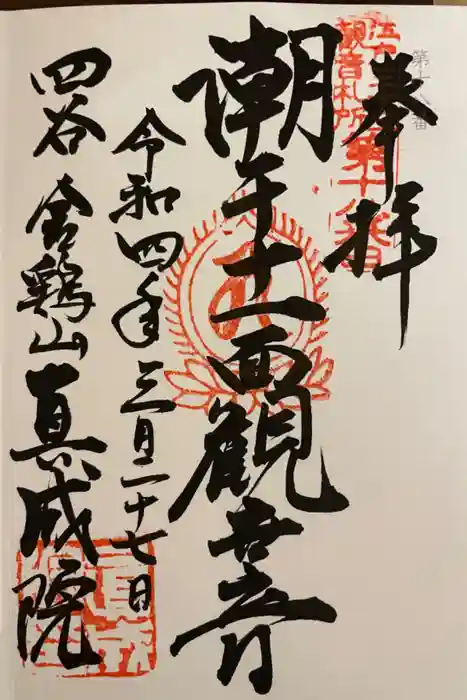 第十八番
奉拝
江戸三十三
観音札所
第十八番
潮干十一面觀世音
令和四年三月二十七日
四谷 金鶏山 真成院